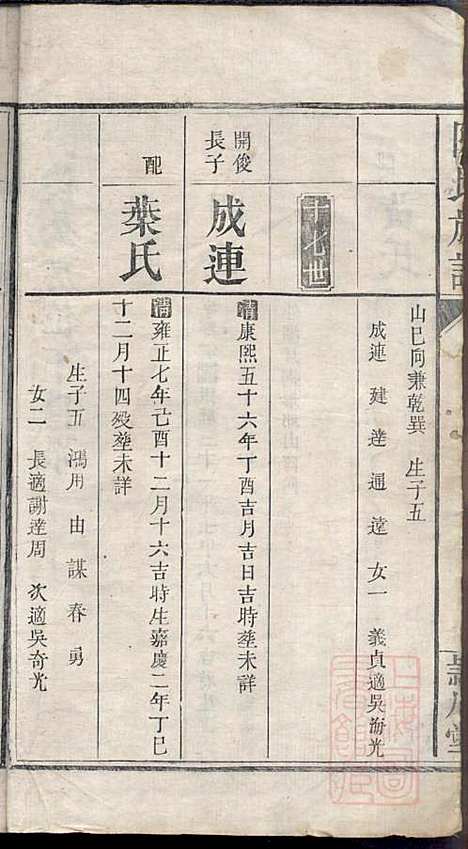 山巳向兼乾巽 生子五
成連 建 達 通 達 女一 義貞適吳海光
十八世
開俊長子
成連
清康熙五十六年丁酉吉月吉日吉時塟未詳
配
葉氏
清雍正七年己酉十二月十六吉時生嘉慶二年丁巳
十二月十四歿塟未詳
生子五 鴻用 由 謀 春 勇
女二 長適謝達周 次適吳奇光